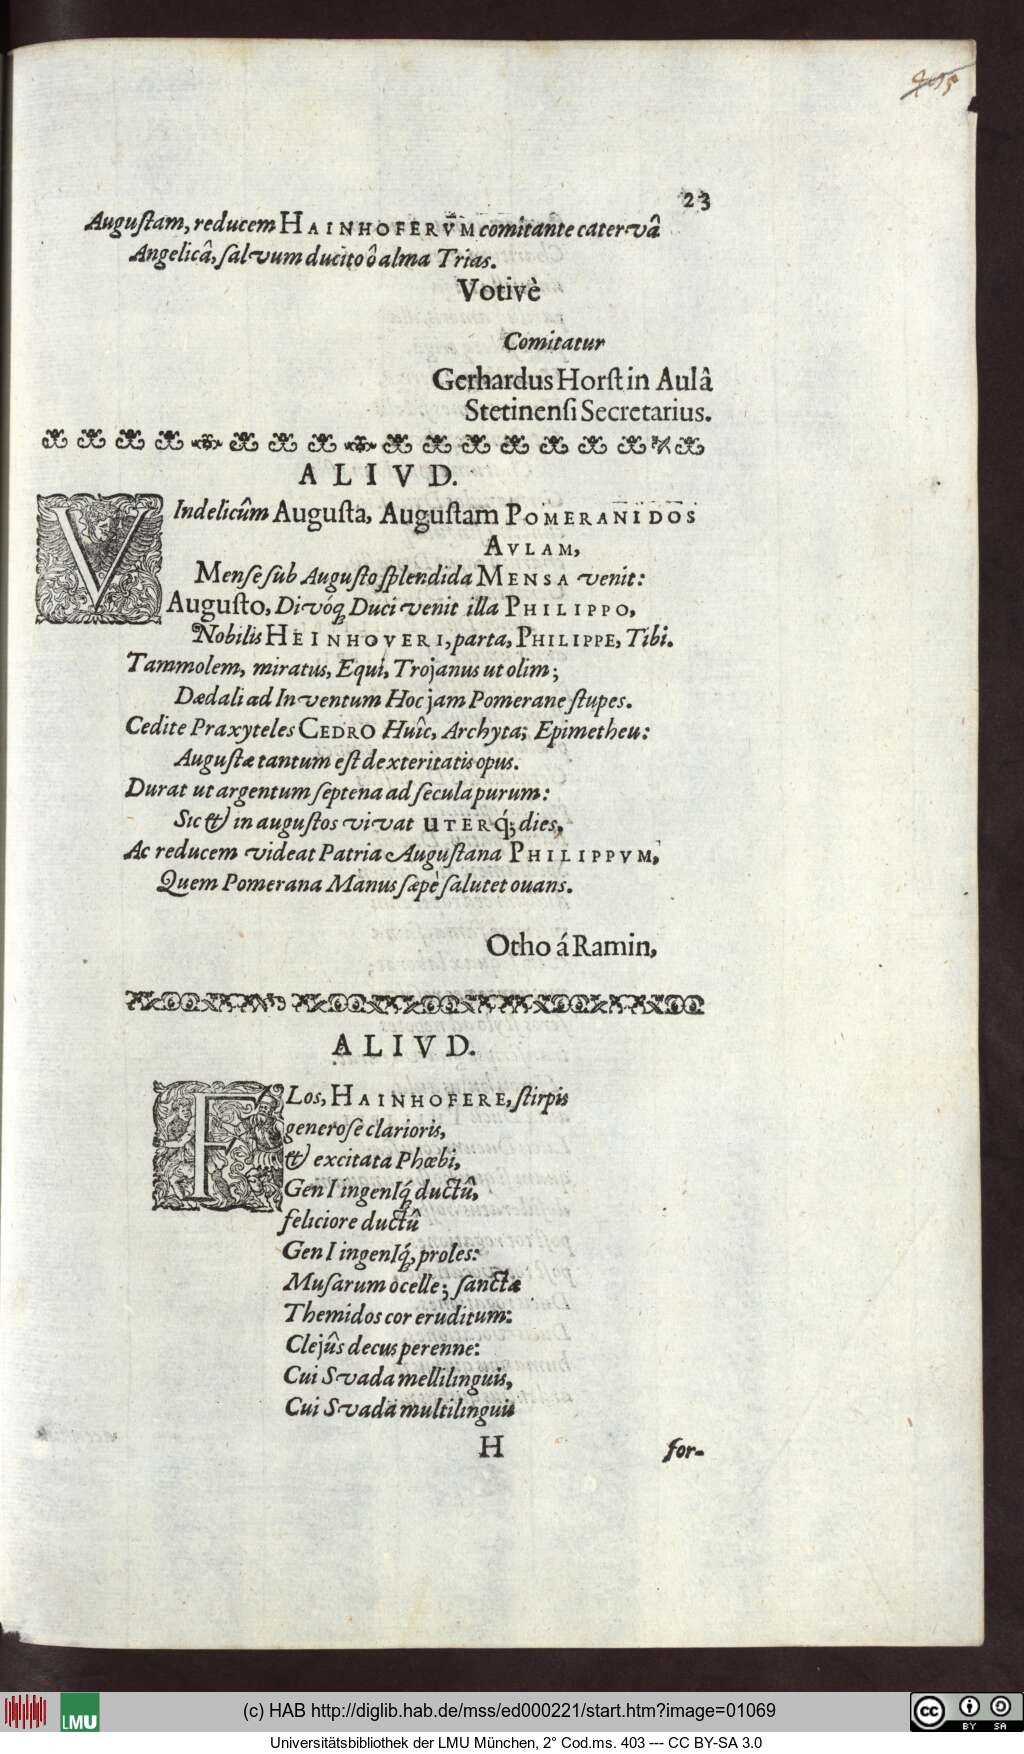 23
Auguſtam, reducem HAINHOFERV̅M comitante catervâ
Angelicâ, ſalvum ducito ô alma Trias.
Votivè
Comitatur
Gerhardus Horſt in Aulâ
Stetinenſi Secretarius.
ALIVD.
VIndelicûm Auguſta, Auguſtam POMERANIDOS
AVLAM,
Menſe ſub Auguſto ſplendida MENSA venit:
Auguſto, Divóq́; Duci venit illa PHILIPPO,
Nobilis HEINHOVERI, parta, PHILIPPE, Tibi.
Tam molem, miratus, Equi, Trojanus ut olim;
Dædali ad Inventum Hoc jam Pomerane ſtupes.
Cedite Praxyteles CEDRO Huîc, Archyta; Epimetheu:
Auguſtæ tantum eſt dexteritatis opus.
Durat ut argentum ſeptena ad ſecula purum:
Sic & in auguſtos vivat UTERq́; dies,
Ac reducem videat Patria Auguſtana PHILIPPVM,
Quem Pomerana Manus ſæpè ſalutet ouans.
Otho á Ramin,
ALIVD.
FLos, HAINHOFERE, ſtirpis
generoſe clarioris,
& excitata Phœbi,
GenI ingenIq́; ductû,
feliciore ductû
GenI ingenIq́; proles:
Muſarum ocelle; ſanctæ
Themidos cor eruditum:
Clejûs decus perenne:
Cui Svada mellilinguis,
Cui Svada multilinguis
H
for-
(c) HAB http://diglib.hab.de/mss/ed000221/start.htm?image=01069
Universitätsbibliothek der LMU München, 2° Cod.ms. 403 --- CC BY-SA 3.0
LMU
cc
BY SA